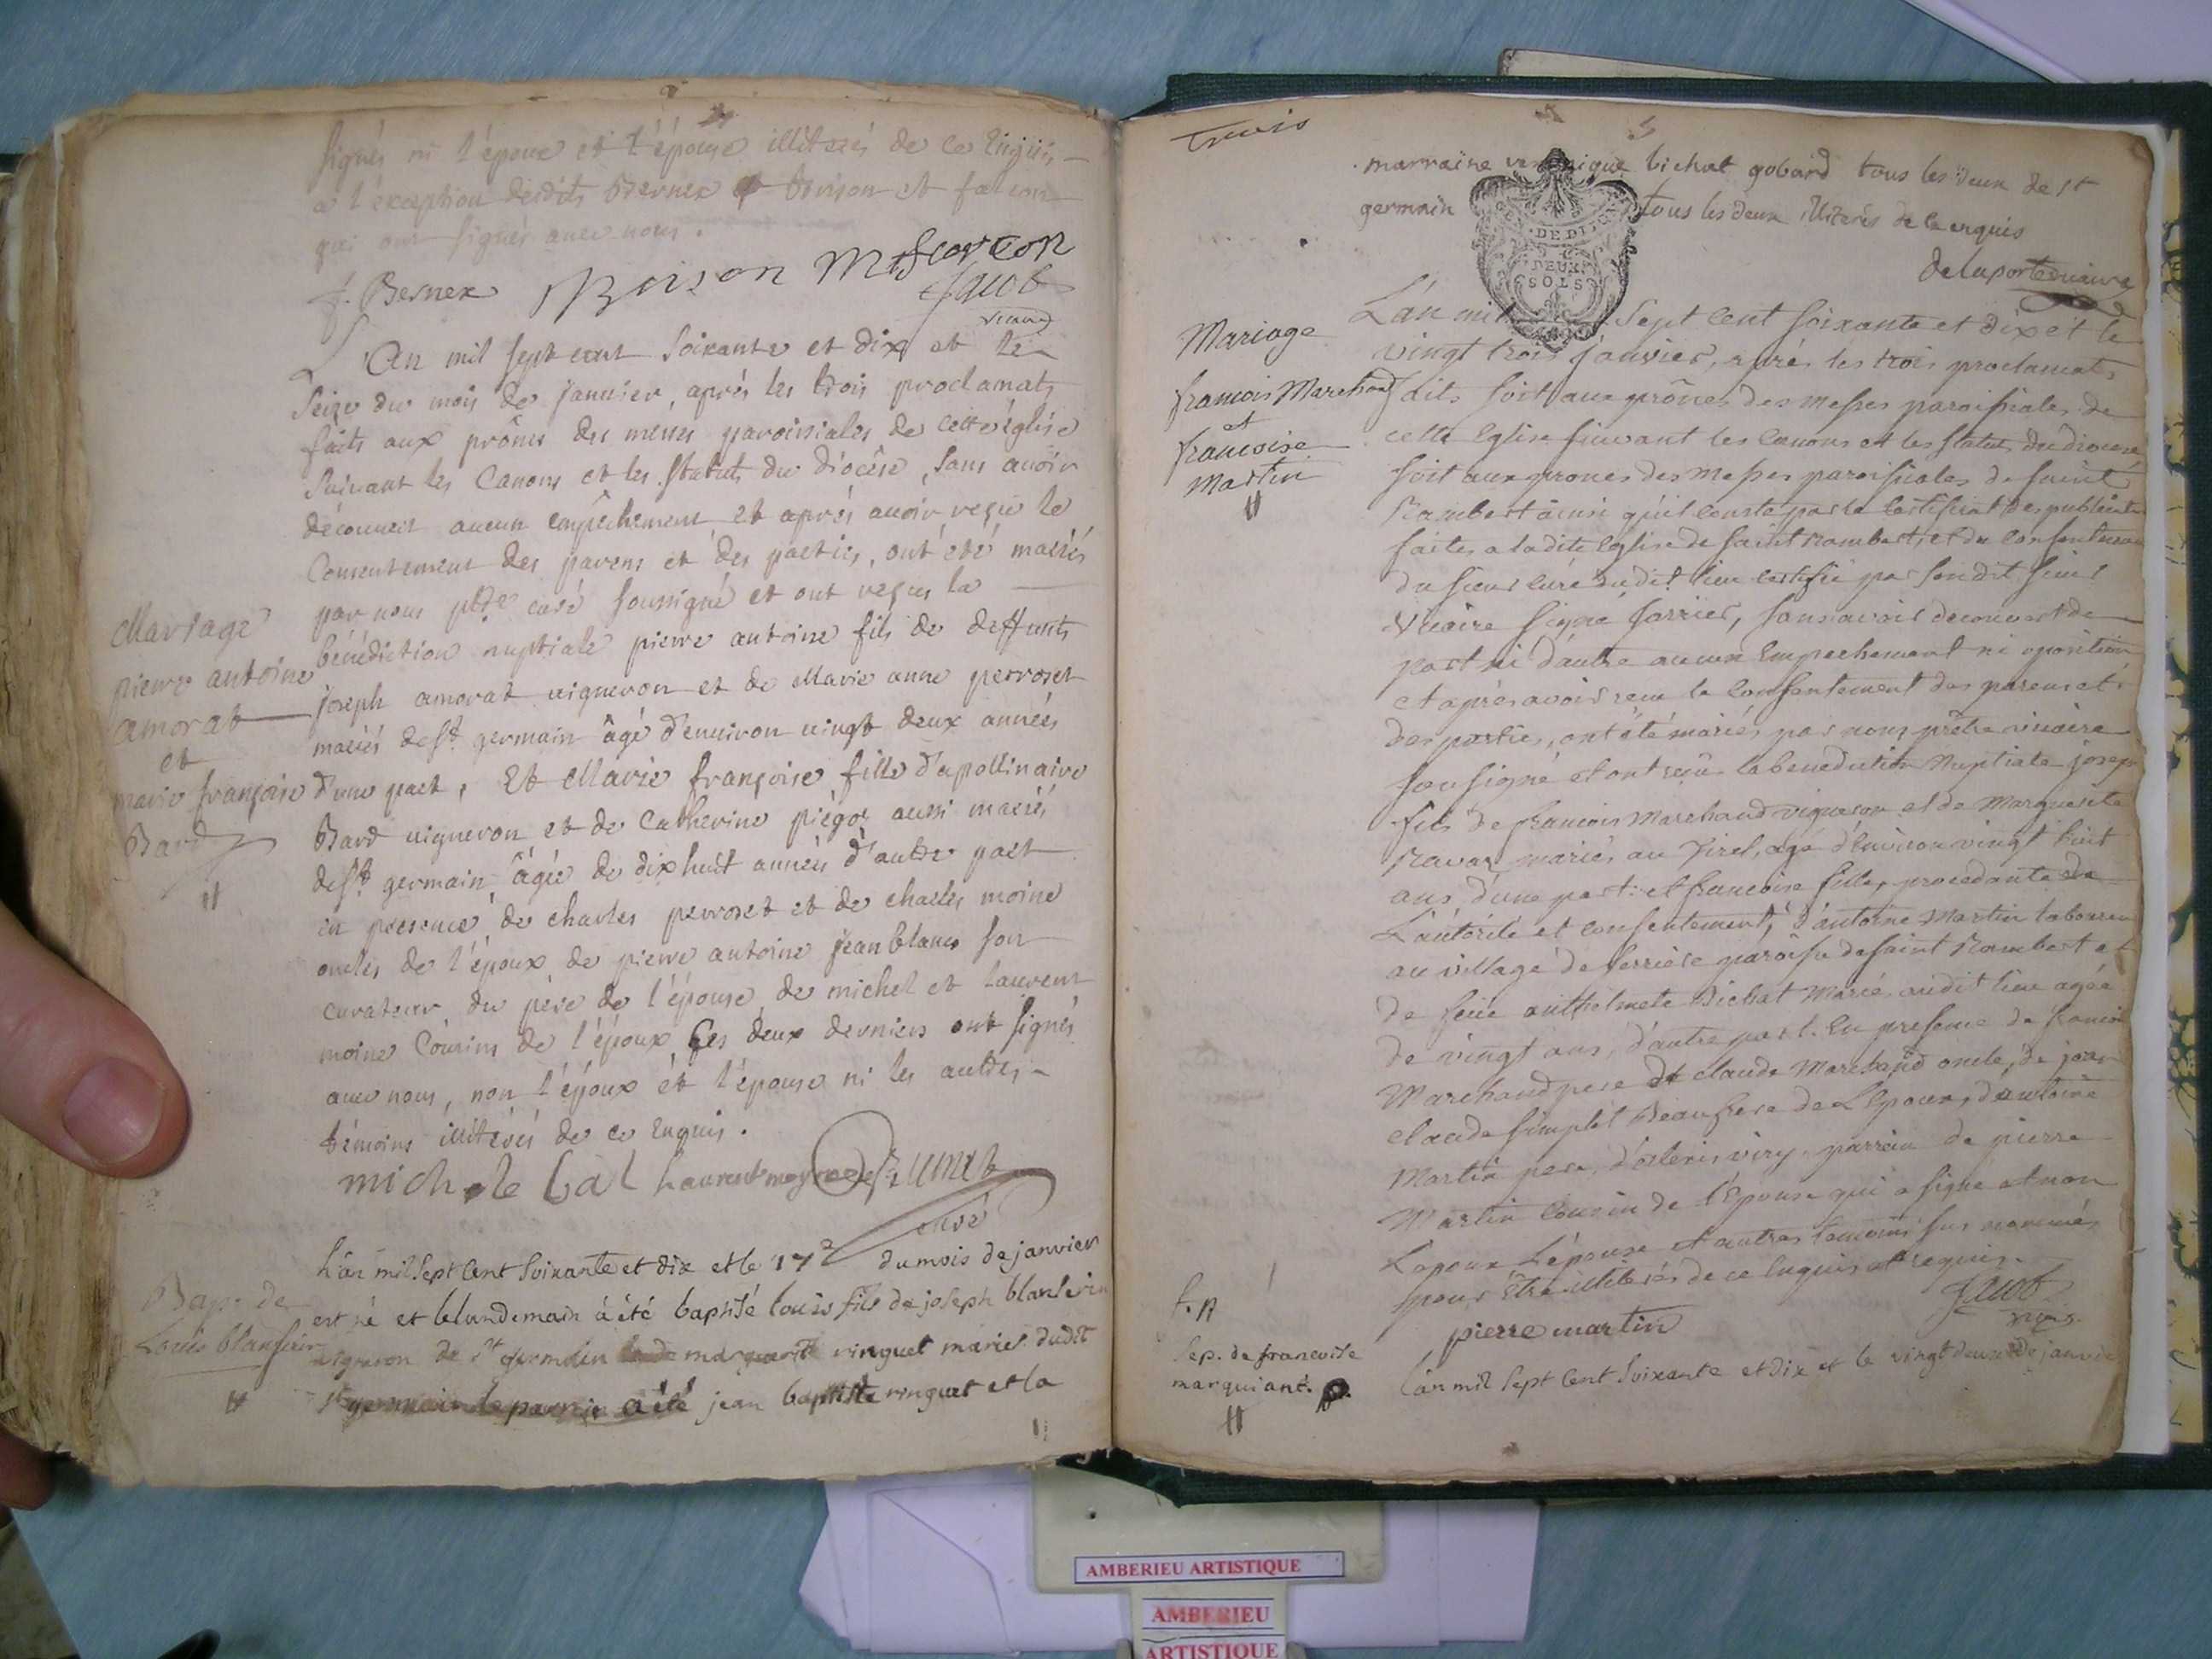 signés ni l'époux et l'épouse illiterés de ce Enquis
a l'exception desdits Bernex Boison et
qui ont signés avec nous.
J. Bernex Boison
Jacob
vicaire
L'An mil sept cent soixante et dix et le
seize du mois de janvier, après les trois proclamats
faits aux prônes des messes paroissiales de cette église
suivant les Canons et les statuts du diocèse, sans avoir
découvert aucun empêchement et après avoir reçu le
Consentement des parens et des parties, ont été mariés
par nous ptre curé soussigné et ont reçus la
Mariage
pierre antoine
amorat
et
marie françoise
Bard
bénédiction nuptiale pierre antoine fils de deffunts
joseph amorat vigneron et de Marie anne perroset
mariés de st germain âgé d'environ vingt deux années
d'une part, Et Marie françoise fille d'apollinaire
Bard vigneron et de Catherine piégoz aussi mariés
de st germain âgée de dixhuit années d'autre part
en presence de charles perroset et de charles moine
oncles de l'époux de pierre antoine jean blanc son
curateur du père de l'épouse de michel et laurent
moine Cousins de l'époux Ces deux derniers ont signés
avec nous, non l'époux et l'épouse ni les autres
témoins illiterés de ce Enquis.
curé
L'an mil sept Cent Soixante et dix et le 17e du mois de janvier
Bap. de
Louis
est né et le lundemain à été baptisé louis fils de joseph
vigneron de st germain marguerite ringuet mariés dudit
st germain le parrein a été jean baptiste ringuet et la
Trois
marraine veronique bichat gobard tous les deux de st
germain tous les deux illiterés de ce enquis
GEN. DE DIJON
DEUX
SOLS
delaporte vicaire
Mariage
francois Marchand
et
francoise
Martin
L'an mil Sept Cent soixante et dix et le
vingt trois janvier, après les trois proclamats
faits soit aux prônes des messes paroissiales de
cette Eglise suivant les canons et les statuts du diocese
soit aux prones des Messes paroissiales de saint
Rambert ainsi qu'il conste par le certificat des publications
faites a ladite Eglise de saint Rambert et du consentement
du sieur curé dudit lieu certifié par sondit sieur
Vicaire signé Jarrier, sans avoir decouvert de
part ni d'autre aucun Empechement ni oposition
et après avoir reçu le consentement des parens et
des parties, ont été mariés par nous prêtre vicaire
soussigné et ont reçu la benediction Nuptiale joseph
fils de francois Marchand vigneron et de Marguerite
Ravaz mariés au Tiret, agé d'environ vingt huit
ans d'une part: et francoise fille, procedante de
L'autorité et consentement, d'antoine Martin laboureur
au village de serriere paroisse de saint Rambert et
de feüe anthelmete Bichat Mariés audit lieu agée
de vingt ans, d'autre part. En presence de francois
Marchand pere de claude Marchand oncle, de jean
claude simplet Beaufrere de L'époux, d'antoine
Martin pere, viry parrein de pierre
Martin cousin de l'Epouse qui a signé et non
L'epoux L'épouse et autres temoins sus nommés
pour être illiterés de ce enquis et requis.
pierre martin
Jacob
vicaire
Sep. de francoise
marquiant.
L'an mil Sept Cent Soixante et Dix et le vingt deux de janvier
AMBERIEU ARTISTIQUE
AMBERIEU
ARTISTIQUE